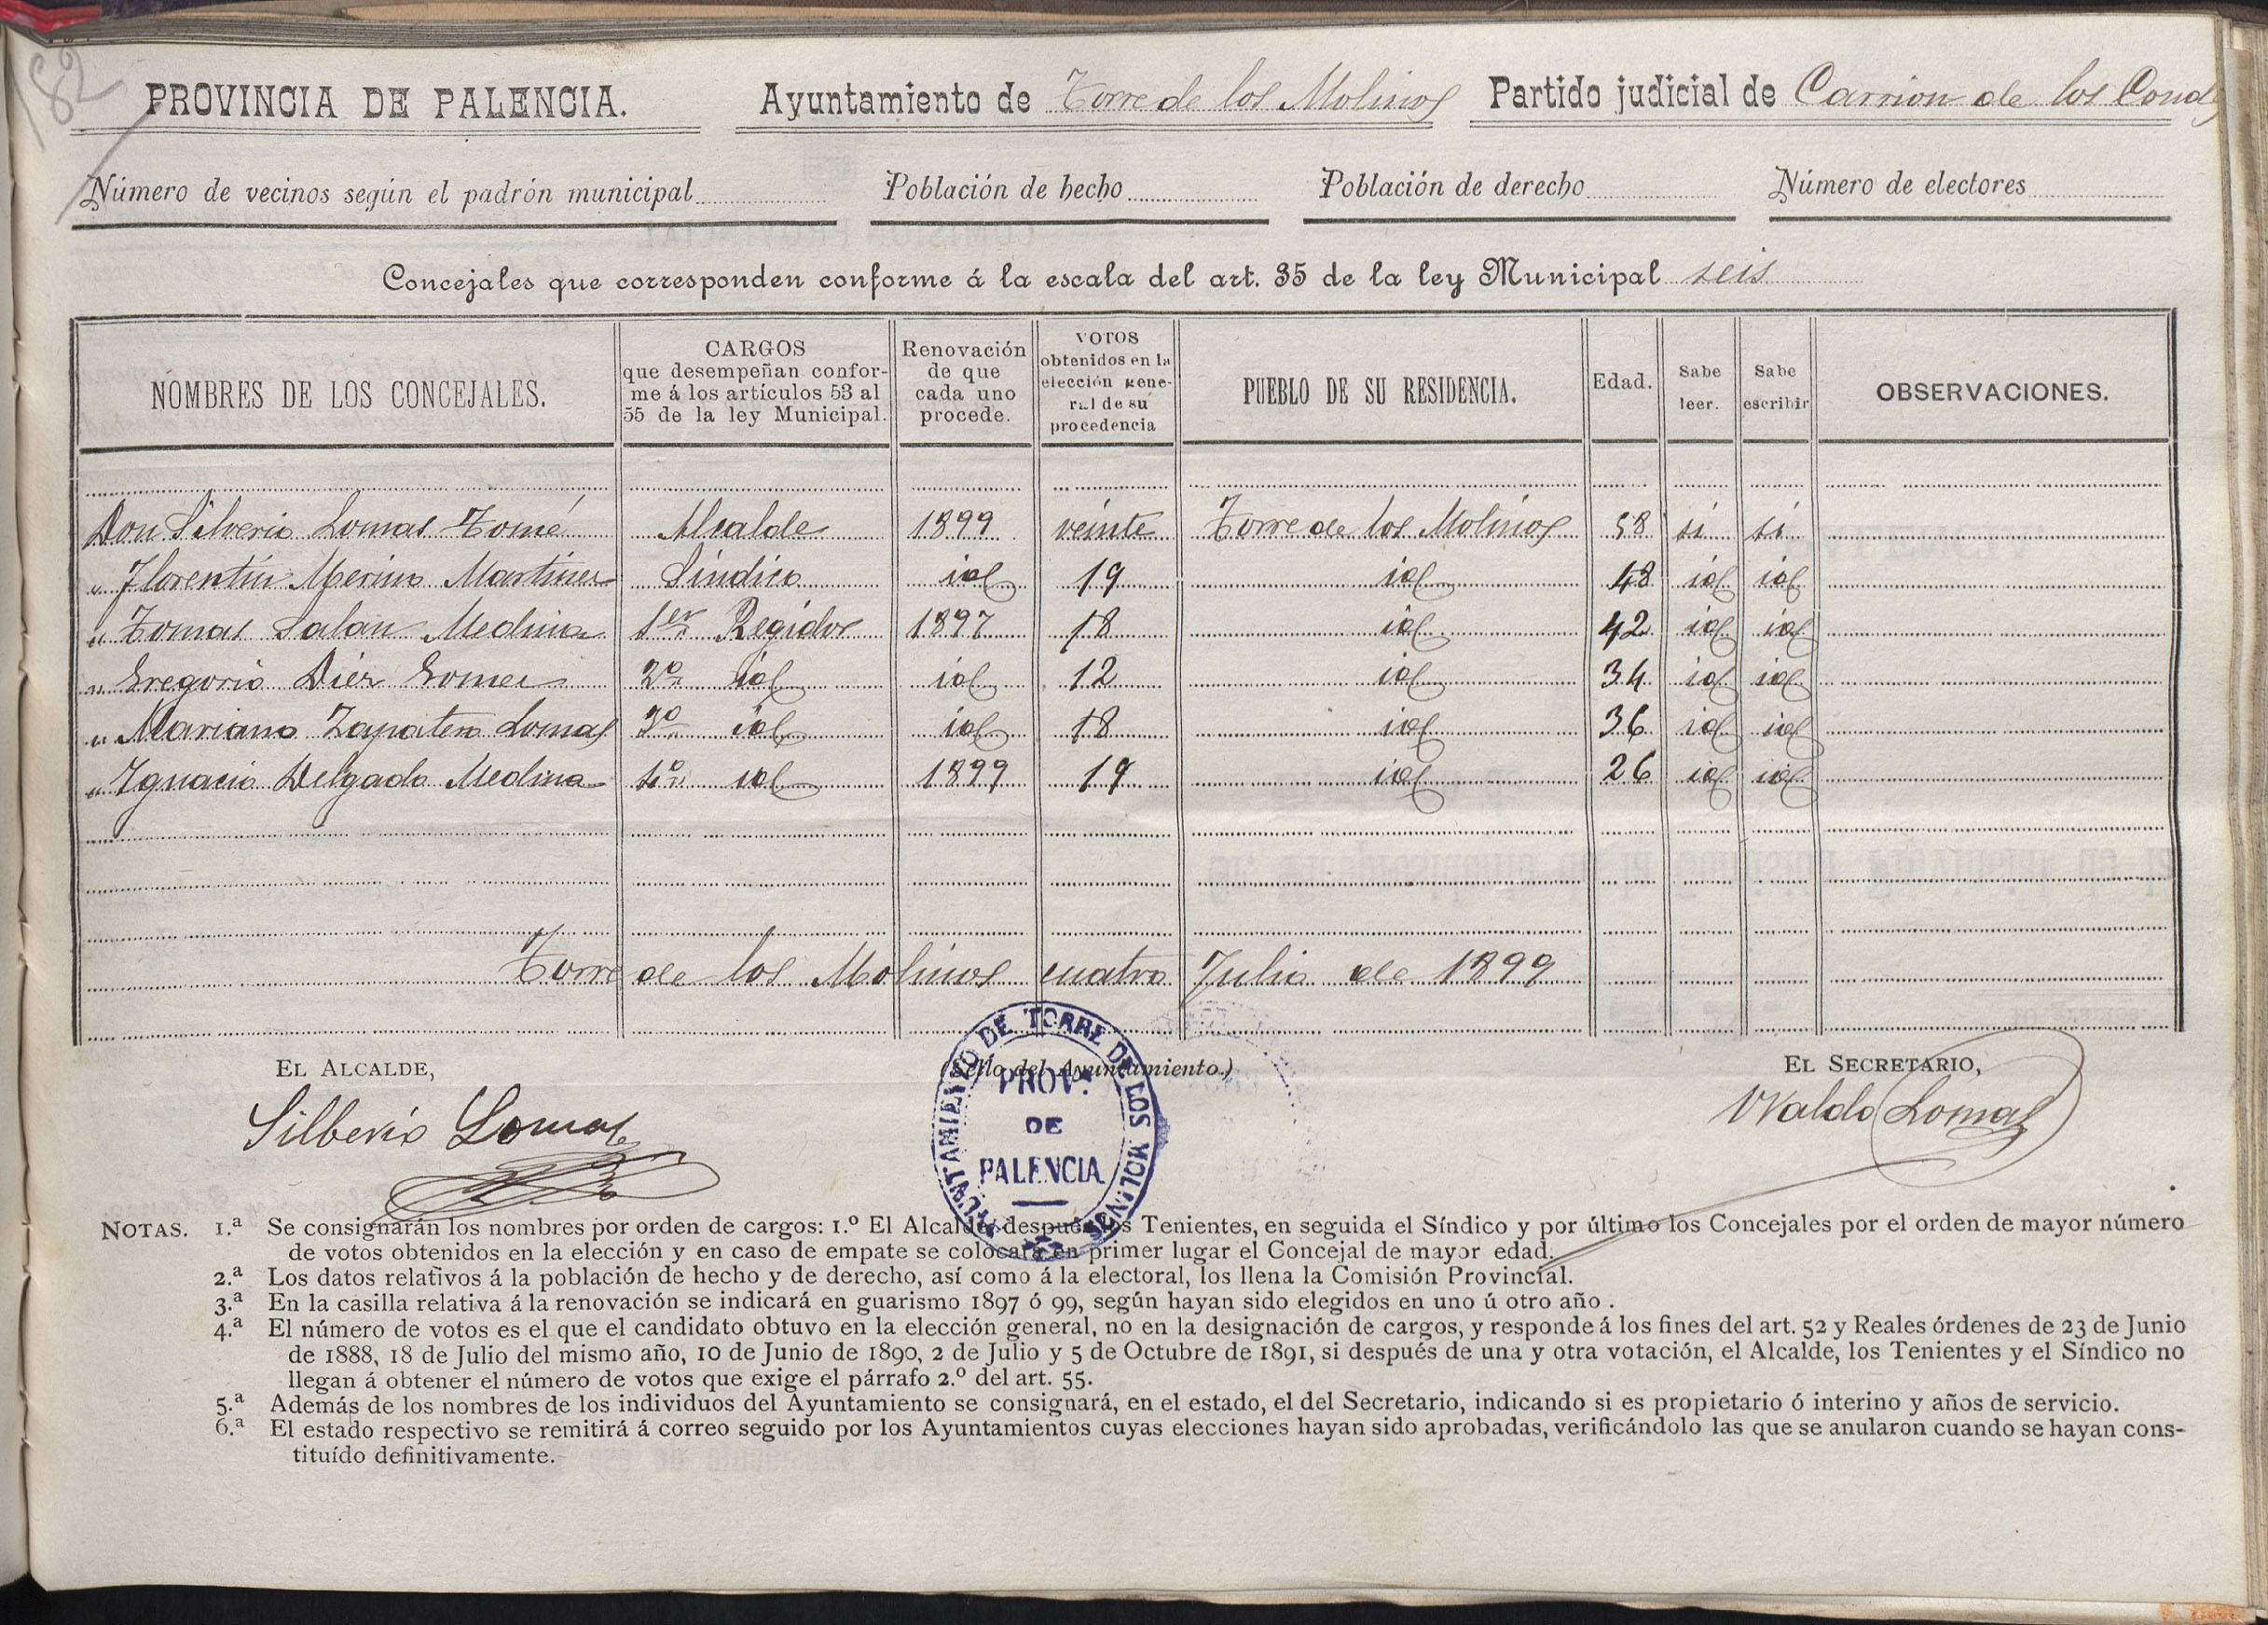 182
PROVINCIA DE PALENCIA. Ayuntamiento de Torre de los Molinos Partido judicial de Carrion de los Cond
Número de vecinos según el padrón municipal Población de hecho Población de derecho Número de electores
Concejales que corresponden conforme á la escala del art. 35 de la ley Municipal seis
NOMBRES DE LOS CONCEJALES. CARGOS que desempeñan conforme á los artículos 53 al 55 de la ley Municipal. Renovación de que cada uno procede. VOTOS obtenidos en la elección general de su procedencia PUEBLO DE SU RESIDENCIA. Edad. Sabe leer. Sabe escribir OBSERVACIONES.
Don Silverio Lomas Tomé Alcalde 1899 veinte Torre de los Molinos 58 si si
" Florentín Merino Martinez Síndico id 19 id 48 id id
" Tomas Salan Medina 1er Regidor 1897 18 id 42 id id
" Gregorio Diez Gomez 2º id id 12 id 34 id id
" Mariano Zapatero Lomas 3º id id 18 id 36 id id
" Ignacio Delgado Medina 4º id 1899 19 id 26 id id
Torre de los Molinos cuatro Julio de 1899
EL ALCALDE, (Sello del Ayuntamiento.) EL SECRETARIO,
Silberio Lomas Waldo Lomas
AYUNTAMIENTO DE TORRE DE LOS MOLINOS
PROVª
DE
PALENCIA
NOTAS. 1.ª Se consignarán los nombres por orden de cargos: 1.º El Alcalde, después los Tenientes, en seguida el Síndico y por último los Concejales por el orden de mayor número
de votos obtenidos en la elección y en caso de empate se colocará en primer lugar el Concejal de mayor edad.
2.ª Los datos relativos á la población de hecho y de derecho, así como á la electoral, los llena la Comisión Provincial.
3.ª En la casilla relativa á la renovación se indicará en guarismo 1897 ó 99, según hayan sido elegidos en uno ú otro año.
4.ª El número de votos es el que el candidato obtuvo en la elección general, no en la designación de cargos, y responde á los fines del art. 52 y Reales órdenes de 23 de Junio
de 1888, 18 de Julio del mismo año, 10 de Junio de 1890, 2 de Julio y 5 de Octubre de 1891, si después de una y otra votación, el Alcalde, los Tenientes y el Síndico no
llegan á obtener el número de votos que exige el párrafo 2.º del art. 55.
5.ª Además de los nombres de los individuos del Ayuntamiento se consignará, en el estado, el del Secretario, indicando si es propietario ó interino y años de servicio.
6.ª El estado respectivo se remitirá á correo seguido por los Ayuntamientos cuyas elecciones hayan sido aprobadas, verificándolo las que se anularon cuando se hayan cons-
tituído definitivamente.